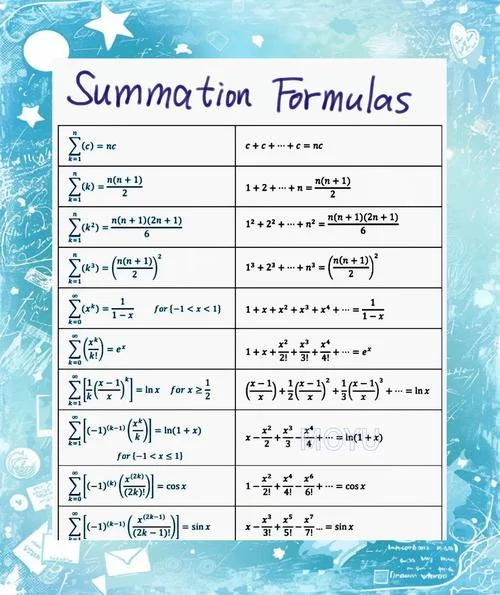 Summation Formulas
∑_{k=1}^{n}(c) = nc
c + c + ⋯ + c = nc
∑_{k=1}^{n}(k) = n(n + 1)/2
1 + 2 + ⋯ + n = n(n + 1)/2
∑_{k=1}^{n}(k²) = n(n + 1)(2n + 1)/6
1² + 2² + ⋯ + n² = n(n + 1)(2n + 1)/6
∑_{k=1}^{n}(k³) = (n(n + 1)/2)²
1³ + 2³ + ⋯ + n³ = (n(n + 1)/2)²
∑_{k=0}^{∞}(x^k) = 1/(1 − x) for {−1 < x < 1}
1 + x + x² + x³ + x⁴ + ⋯ = 1/(1 − x)
∑_{k=0}^{∞}(x^k/k!) = e^x
1 + x + x²/2! + x³/3! + x⁴/4! + ⋯ = e^x
∑_{k=1}^{∞}[1/k((x − 1)/x)^k] = ln x for x ≥ 1/2
((x − 1)/x) + 1/2((x − 1)/x)² + 1/3((x − 1)/x)³ + ⋯ = ln x
∑_{k=1}^{∞}[(−1)^(k−1)(x^k/k)] = ln(1 + x)
for {−1 < x ≤ 1}
x − x²/2 + x³/3 − x⁴/4 + ⋯ = ln(1 + x)
MOYU
∑_{k=0}^{∞}[(−1)^(k)(x^(2k)/(2k)!)] = cos x
1 − x²/2! + x⁴/4! − x⁶/6! + ⋯ = cos x
∑_{k=1}^{∞}[(−1)^(k−1)(x^(2k−1)/(2k − 1)!)] = sin x
x − x³/3! + x⁵/5! − x⁷/7! … = sin x